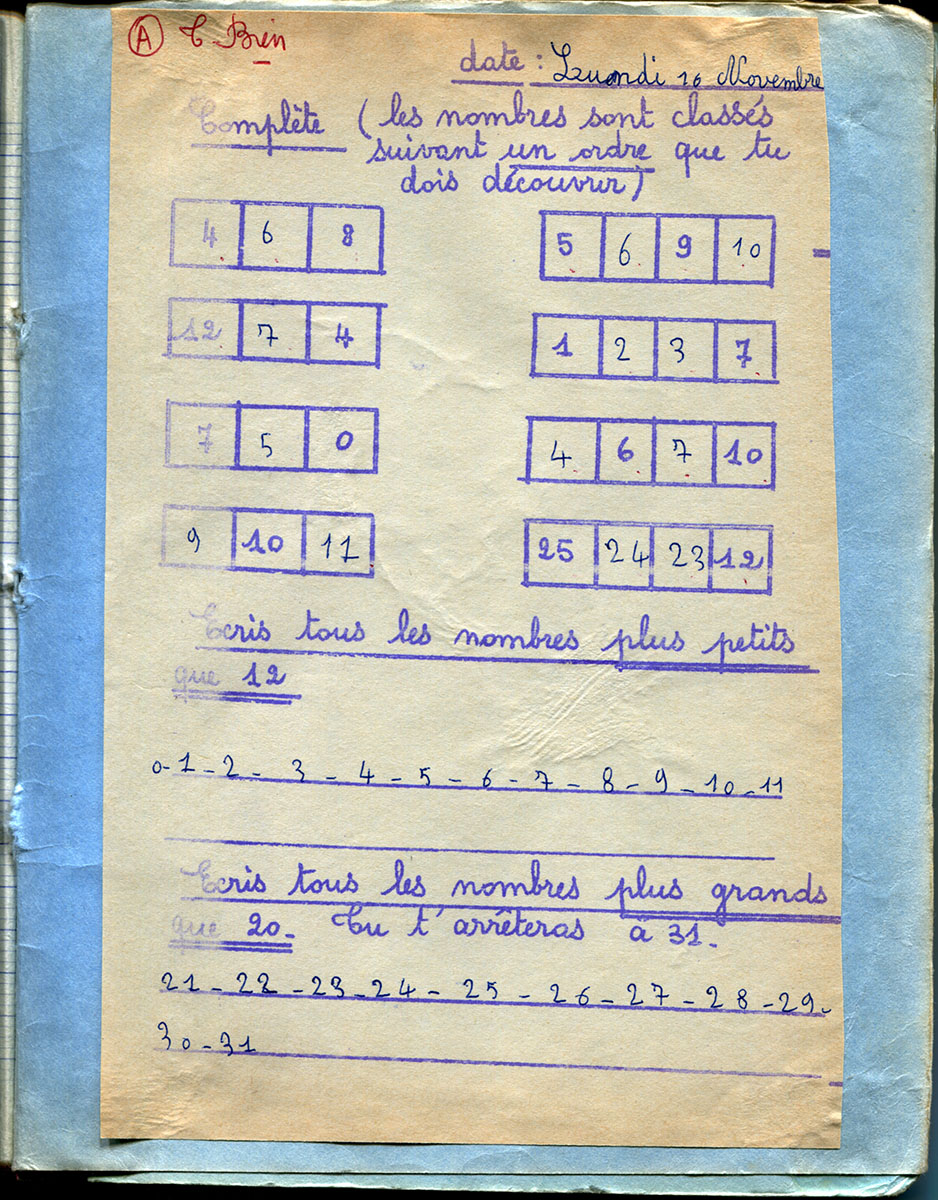 A T. Bien
date : Lundi 16 Novembre
Complète (les nombres sont classés
suivant un ordre que tu
dois découvrir)
4 6 8
5 6 9 10
12 7 4
1 2 3 7
7 5 0
4 6 7 10
9 10 11
25 24 23 12
Ecris tous les nombres plus petits
que 12
0-1-2-3-4-5-6-7-8-9-10-11
Ecris tous les nombres plus grands
que 20. Tu t'arrêteras à 31.
21-22-23-24-25-26-27-28-29-
30-31